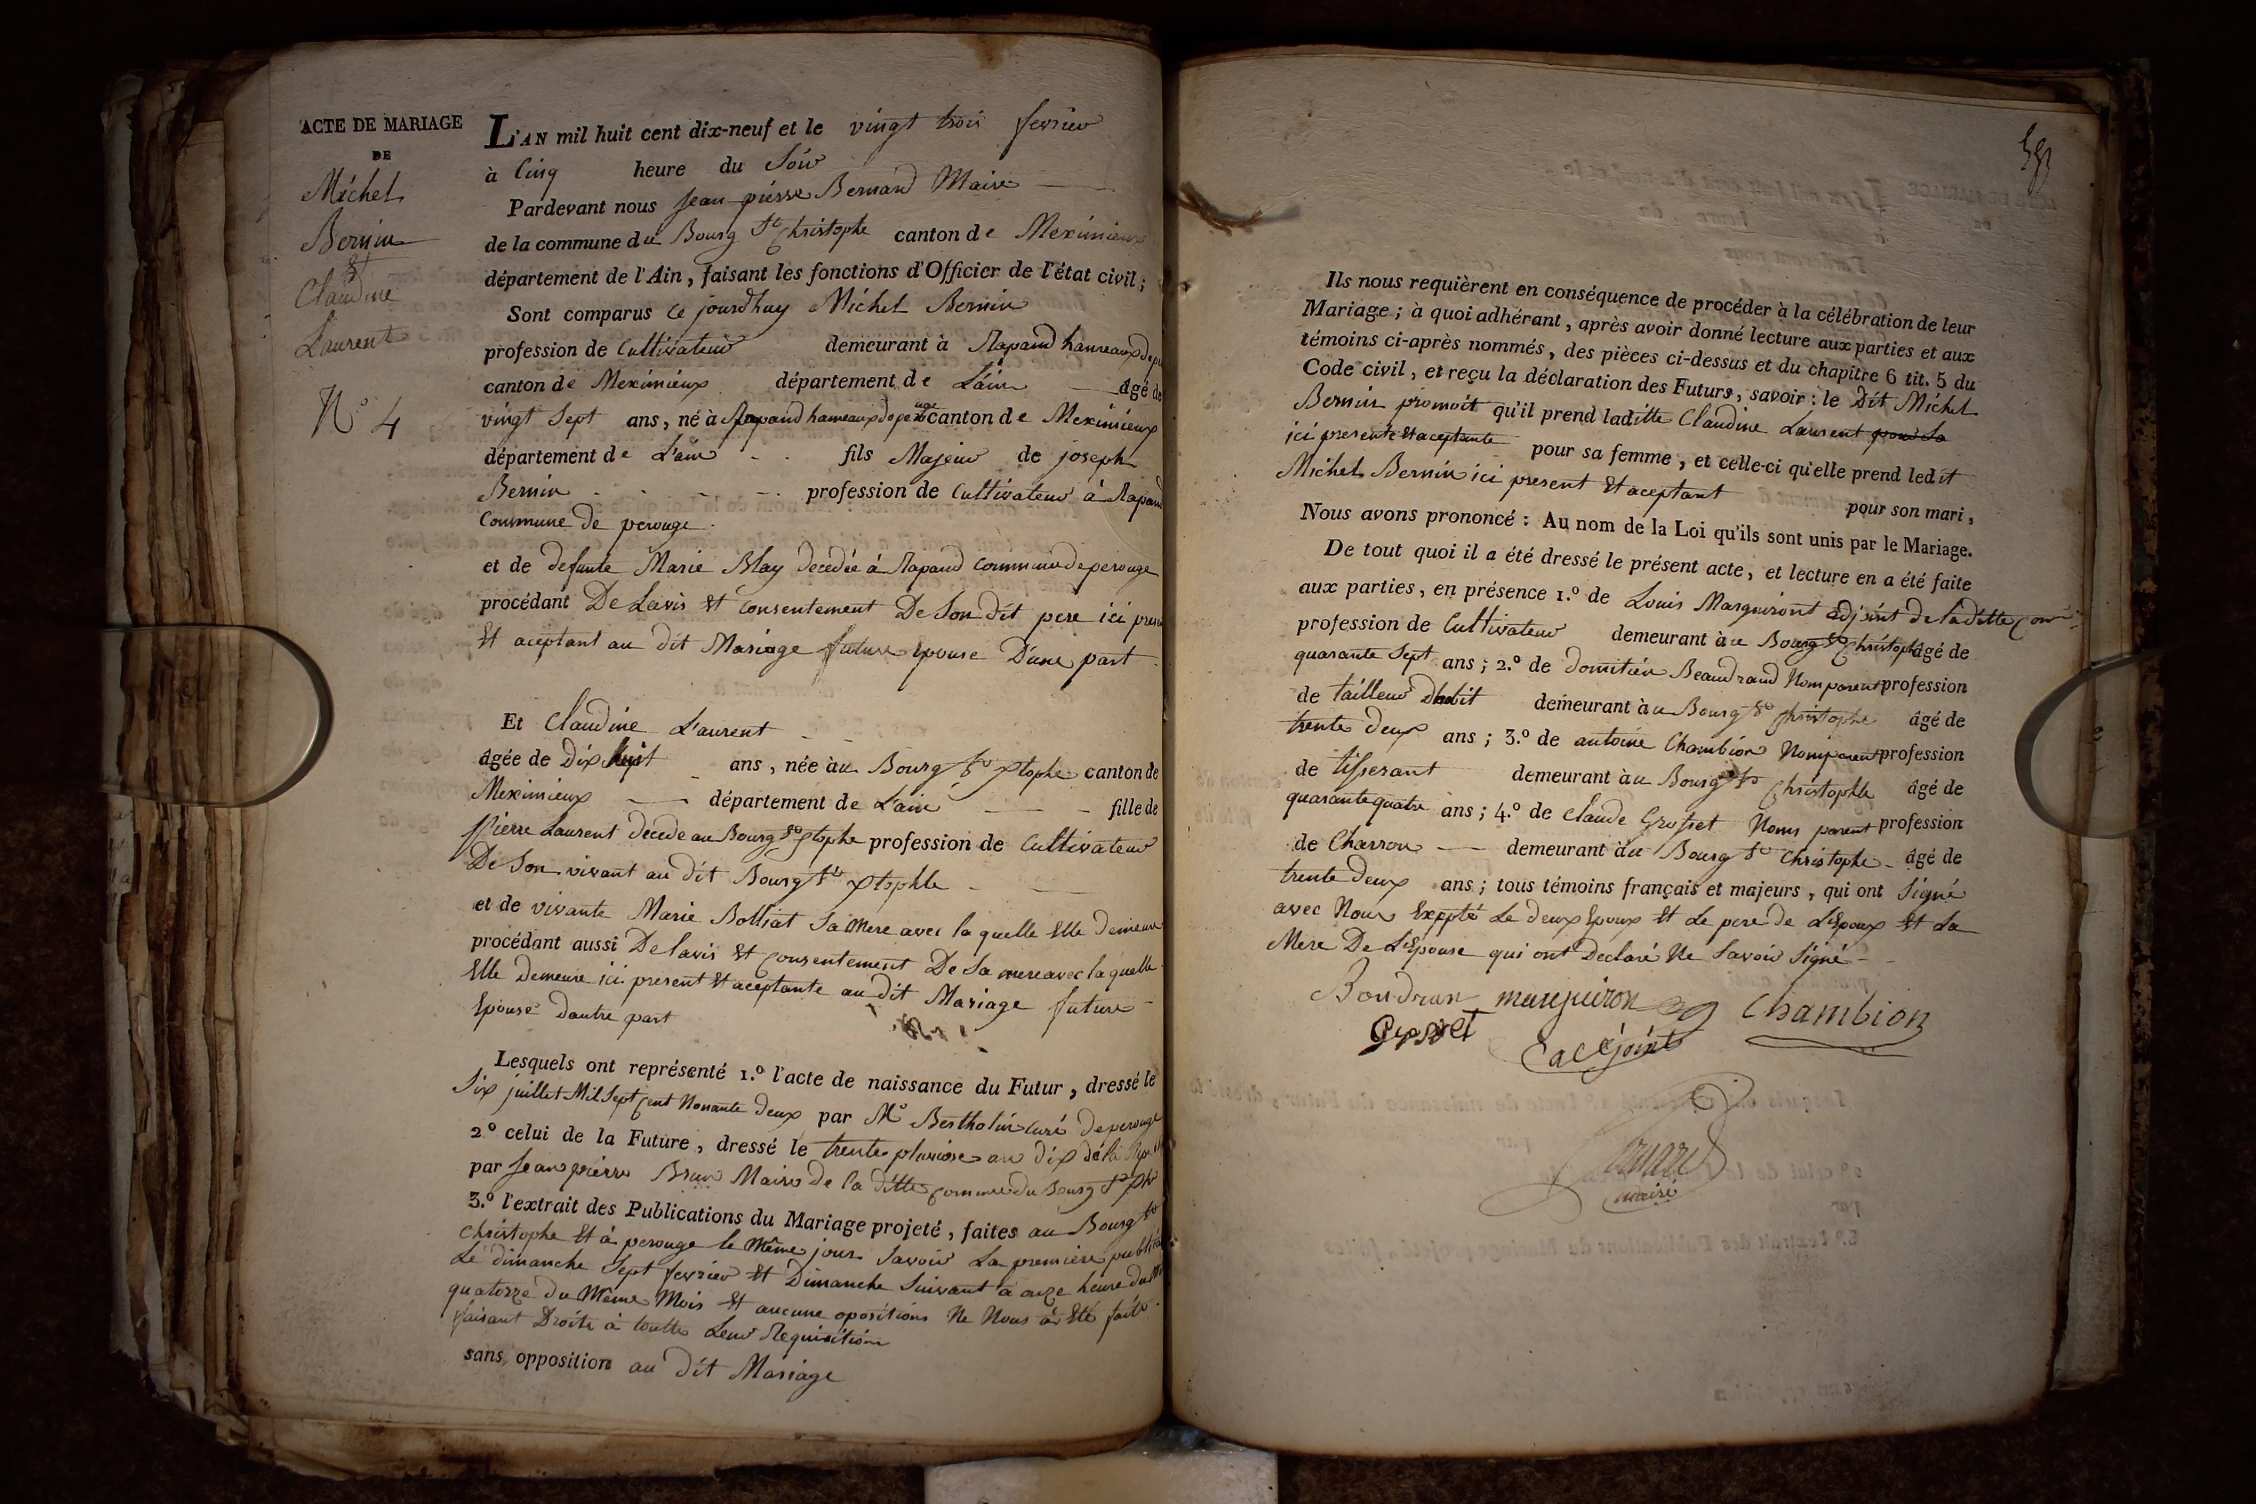 ACTE DE MARIAGE
DE
Michel
Bernin
Et
Claudine
Laurent
N.° 4
L'AN mil huit cent dix-neuf et le vingt trois fevrier
à Cinq heure du Soir
Pardevant nous Jean pierre Bernard Maire
de la commune du Bourg St Christophe canton de Meximieux
département de l'Ain, faisant les fonctions d'Officier de l'état civil;
Sont comparus ce jourdhuy Michel Bernin
profession de Cultivateur demeurant à Rapand hameaux de
canton de Meximieux département de L'ain âgé de
vingt Sept ans, né à Rapand hameaux de perouge canton de Meximieux
département de L'ain fils Majeur de joseph
Bernin profession de Cultivateur à Rapand
Commune de perouge
et de defunte Marie Blay decedée à Rapand Commune de perouge
procédant De Lavis Et Consentement De Son dit pere ici
Et aceptant au dit Mariage future Epouse D'une part
Et Claudine Laurent
âgée de Dix ans, née au Bourg St Xtophe canton de
Meximieux département de L'ain fille de
Pierre Laurent decede au Bourg St Xtophe profession de Cultivateur
De Son vivant au dit Bourg St Xtophle
et de vivante Marie Bolliat Sa Mere avec la quelle Elle demeure
procédant aussi De lavis Et Consentement De Sa mere avec la quelle
Elle demeure ici present Et aceptante au dit Mariage future
Epouse dautre part
Lesquels ont représenté 1.° l'acte de naissance du Futur, dressé le
Six juillet Mil Sept Cent Nonante deux par Mr Bertholin curé de perouge
2.° celui de la Future, dressé le trente pluviose an dix de la
par Jean pierre Brun Maire de la ditte commune du Bourg St
3.° l'extrait des Publications du Mariage projeté, faites au Bourg St
Christophe Et à perouge le Même jour Savoir La premiere
Le dimanche Sept fevrier Et Dimanche Suivant à onze heure du
quatorze du Même Mois Et aucune opositions Ne Nous a Eté faite
faisant Droite à toutte Leur Requisition
sans opposition au dit Mariage
Ils nous requièrent en conséquence de procéder à la célébration de leur
Mariage; à quoi adhérant, après avoir donné lecture aux parties et aux
témoins ci-après nommés, des pièces ci-dessus et du chapitre 6 tit. 5 du
Code civil, et reçu la déclaration des Futurs, savoir: le dit Michel
Bernin promoit qu'il prend laditte Claudine Laurent
ici presente Et aceptante pour sa femme, et celle-ci qu'elle prend ledit
Michel Bernin ici present Et aceptant pour son mari,
Nous avons prononcé: Au nom de la Loi qu'ils sont unis par le Mariage.
De tout quoi il a été dressé le présent acte, et lecture en a été faite
aux parties, en présence 1.° de Louis Marguiront adjoint de la ditte
profession de Cultivateur demeurant au Bourg St Christophe âgé de
quarante Sept ans; 2.° de domitien Beaudrand Nom parent profession
de tailleur Dhabit demeurant au Bourg St Christophe âgé de
trente deux ans; 3.° de antoine Chambion Nom parent profession
de tisserant demeurant au Bourg St Christophle âgé de
quarante quatre ans; 4.° de Claude Grosset Nom parent profession
de Charron demeurant au Bourg St Christophe âgé de
trente deux ans; tous témoins français et majeurs, qui ont Signé
avec Nous Exepté Le deux Epoux Et Le pere de L'Epoux Et La
Mere De L'Epouse qui ont Declaré Ne Savoir Signé
Boudran marguiron Chambion
Grosset
adjoint
maire